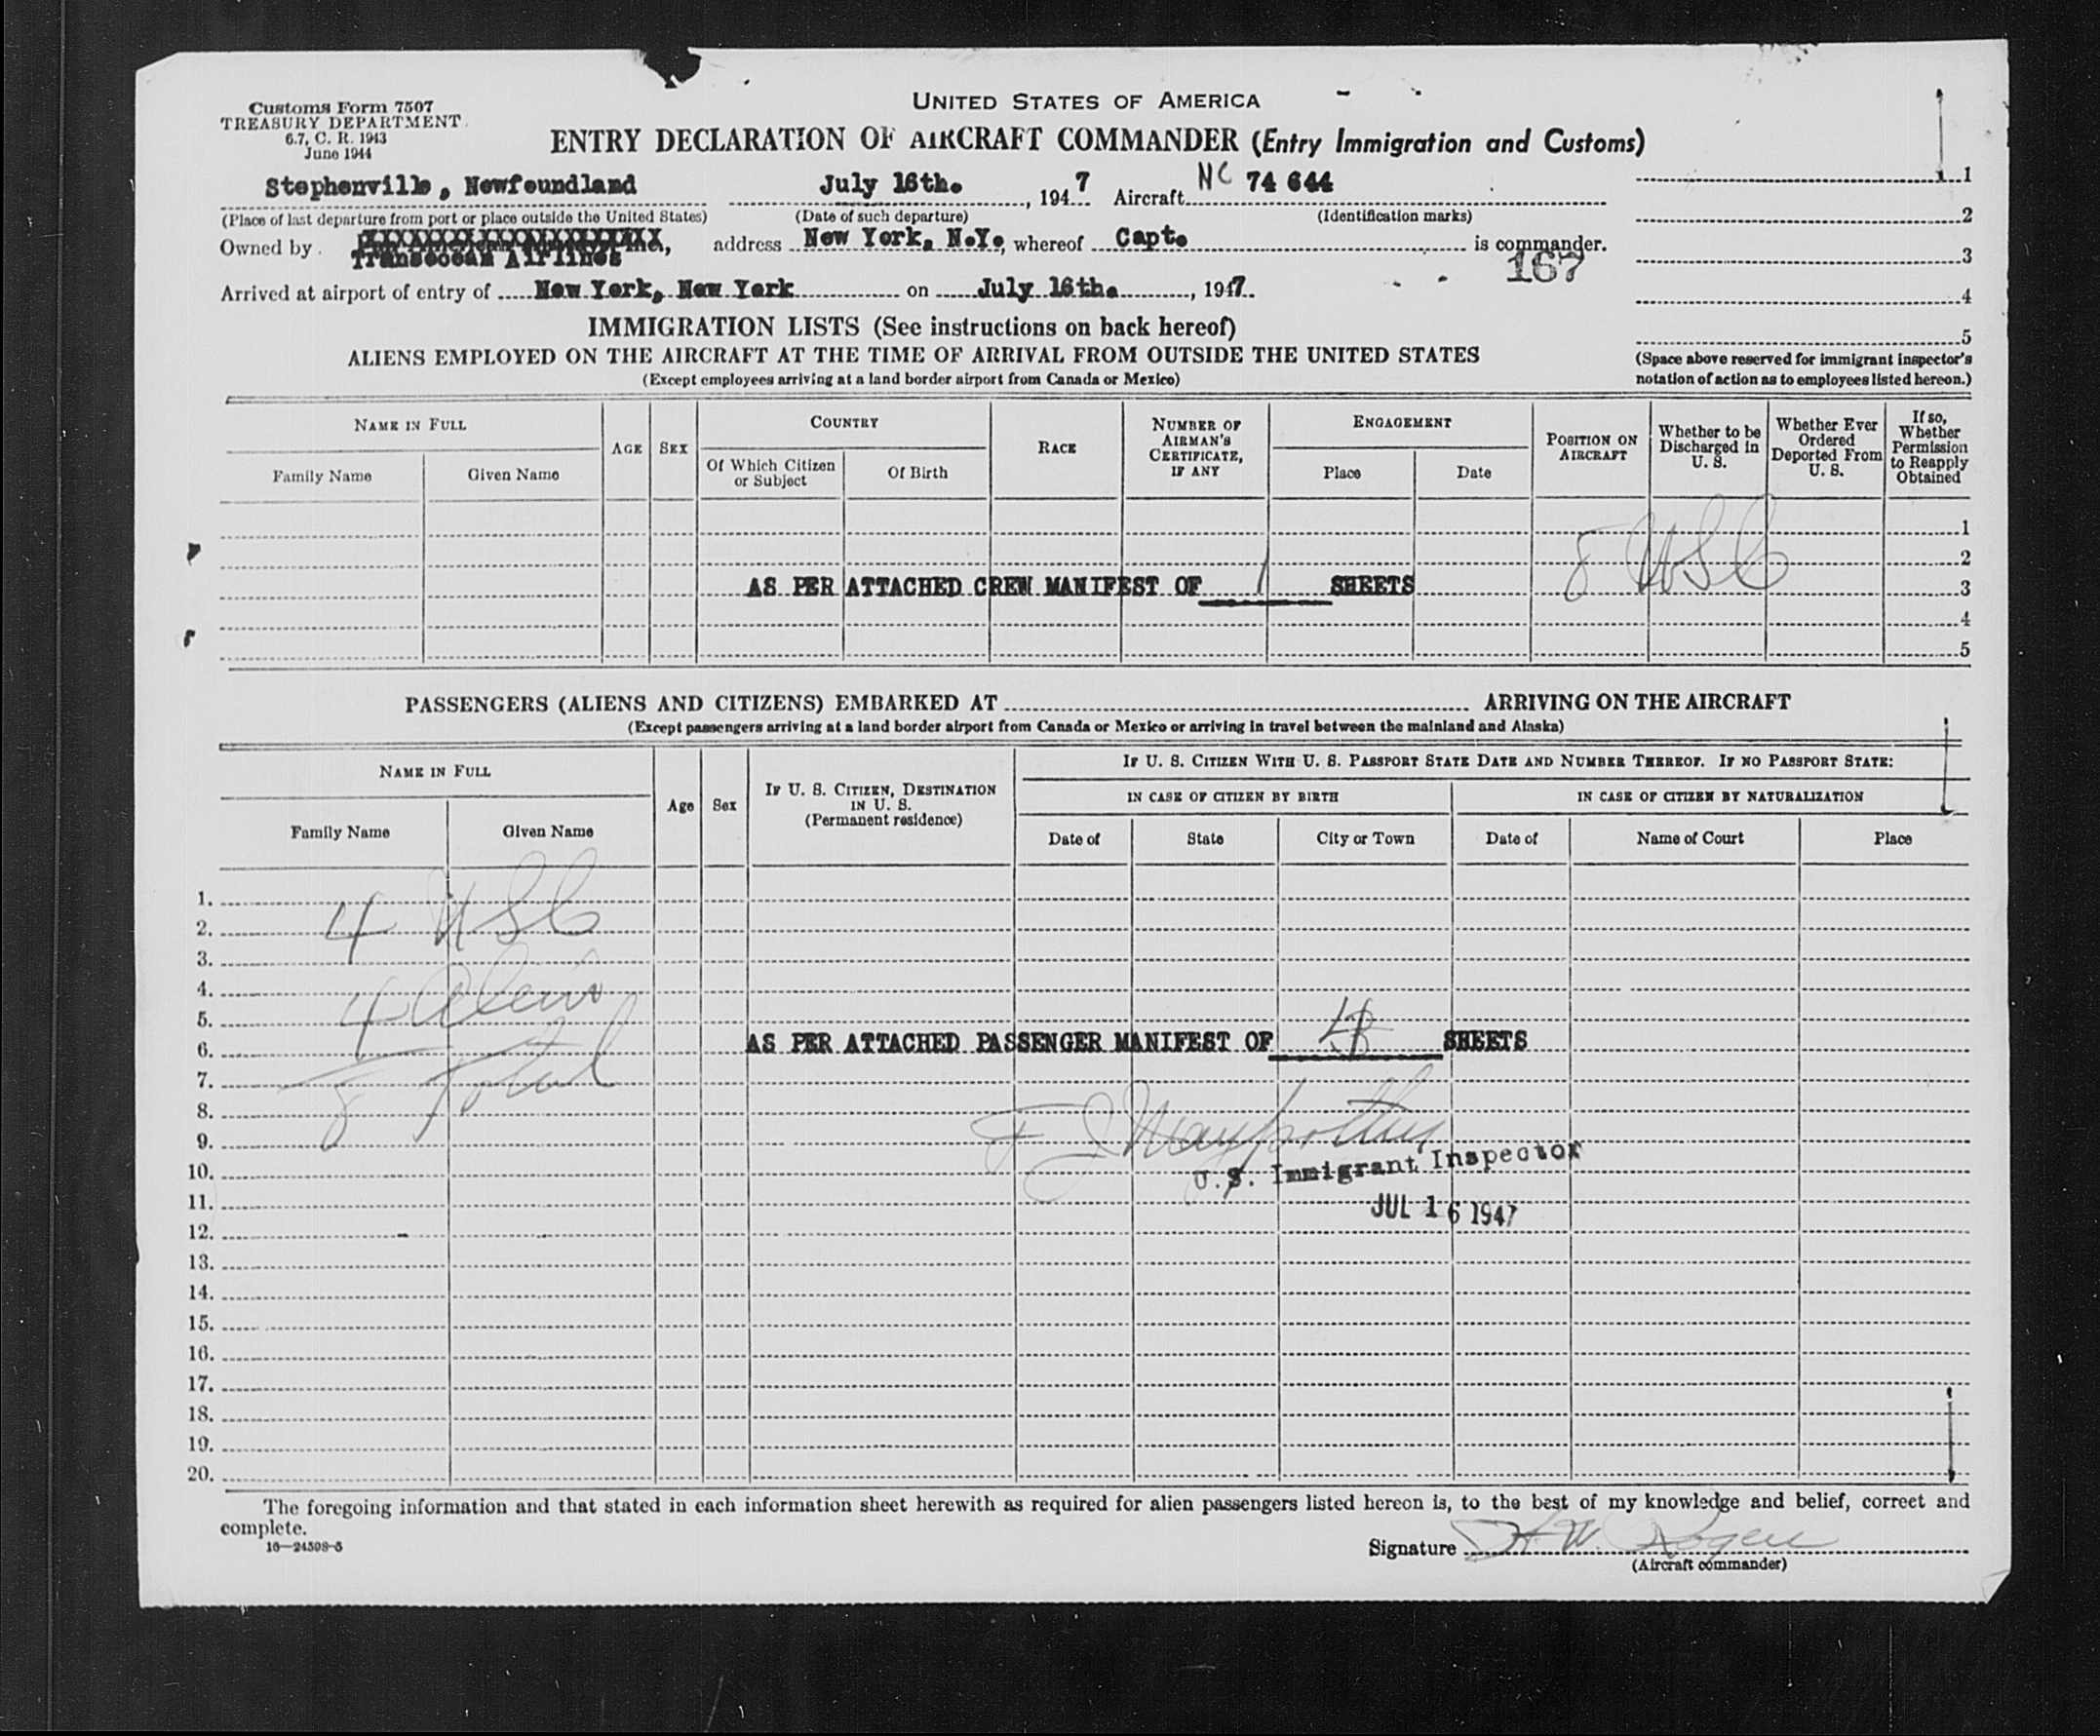 Customs Form 7507
TREASURY DEPARTMENT
6.7, C. R. 1943
June 1944
UNITED STATES OF AMERICA
ENTRY DECLARATION OF AIRCRAFT COMMANDER (Entry Immigration and Customs)
Stephenville, Newfoundland July 16th. , 1947 Aircraft NC 74 644
(Place of last departure from port or place outside the United States) (Date of such departure) (Identification marks)
Owned by Transocean Airlines address New York, N.Y., whereof Capt. is commander.
167
Arrived at airport of entry of New York, New York on July 16th. , 1947
1
2
3
4
5
(Space above reserved for immigrant inspector's notation of action as to employees listed hereon.)
IMMIGRATION LISTS (See instructions on back hereof)
ALIENS EMPLOYED ON THE AIRCRAFT AT THE TIME OF ARRIVAL FROM OUTSIDE THE UNITED STATES
(Except employees arriving at a land border airport from Canada or Mexico)
NAME IN FULL
Family Name Given Name
AGE
SEX
COUNTRY
Of Which Citizen or Subject
Of Birth
RACE
NUMBER OF AIRMAN'S CERTIFICATE, IF ANY
ENGAGEMENT
Place Date
POSITION ON AIRCRAFT
Whether to be Discharged in U. S.
Whether Ever Ordered Deported From U. S.
If so, Whether Permission to Reapply Obtained
1
2
8 USC
AS PER ATTACHED CREW MANIFEST OF 1 SHEETS 3
4
5
PASSENGERS (ALIENS AND CITIZENS) EMBARKED AT ARRIVING ON THE AIRCRAFT
(Except passengers arriving at a land border airport from Canada or Mexico or arriving in travel between the mainland and Alaska)
NAME IN FULL
Family Name Given Name
Age
Sex
IF U. S. CITIZEN, DESTINATION IN U. S.
(Permanent residence)
IF U. S. CITIZEN WITH U. S. PASSPORT STATE DATE AND NUMBER THEREOF. IF NO PASSPORT STATE:
IN CASE OF CITIZEN BY BIRTH IN CASE OF CITIZEN BY NATURALIZATION
Date of State City or Town Date of Name of Court Place
1.
2. 4 USC
3.
4.
5. 4 Aliens
6. AS PER ATTACHED PASSENGER MANIFEST OF 4 SHEETS
7. 8 Total
8.
9.
10. U.S. Immigrant Inspector
11. JUL 16 1947
12.
13.
14.
15.
16.
17.
18.
19.
20.
The foregoing information and that stated in each information sheet herewith as required for alien passengers listed hereon is, to the best of my knowledge and belief, correct and
complete.
16—24598-5
Signature
(Aircraft commander)